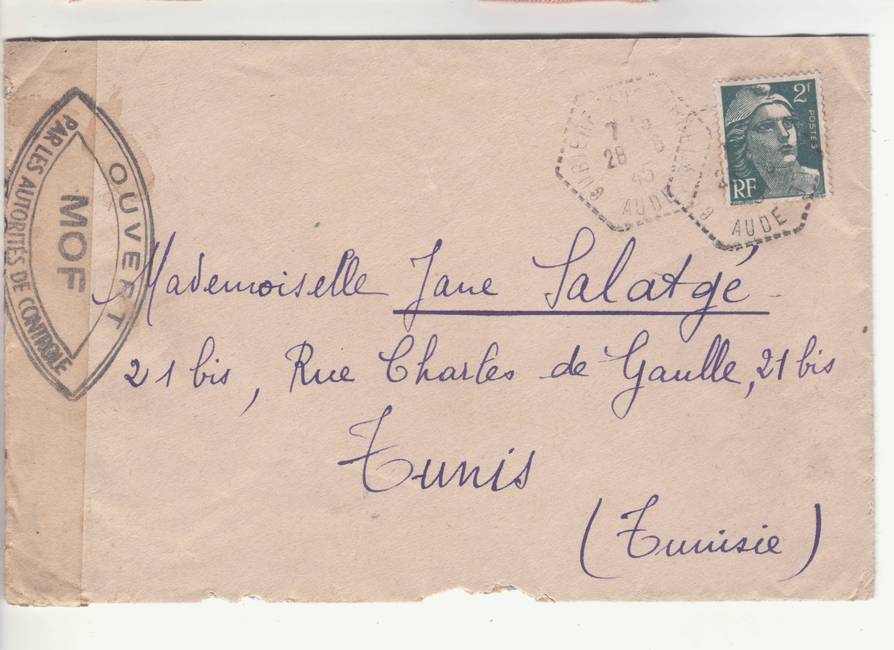 OUVERT
MOF
PAR LES AUTORITÉS DE CONTROLE
7 
28 
45
AUDE
AUDE
2F
POSTES
RF
Mademoiselle Jane Salatgé
21 bis, Rue Charles de Gaulle, 21 bis
Tunis
(Tunisie)